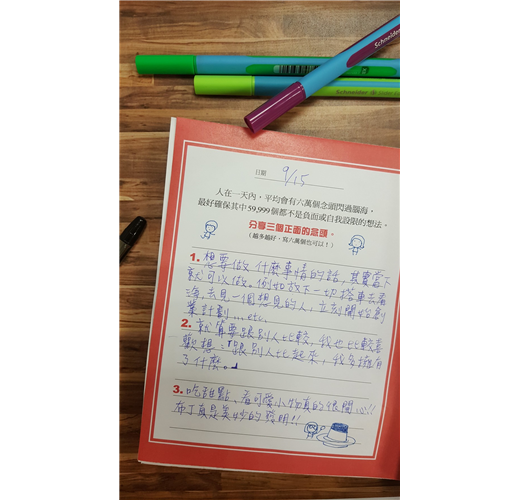 Schneider
Schneider
日期 9/15
人在一天內,平均會有六萬個念頭閃過腦海,
最好確保其中59,999個都不是負面或自我設限的想法。
分享三個正面的念頭。
(越多越好,寫六萬個也可以!)
1. 想要做什麼事情的話,其實當下
就可以做。例如放下一切搭車去看
海,去見一個想見的人,立刻開始創
業計劃...etc.
2. 就算要跟別人比較,我也比較喜
歡想:跟別人比起來,我多擁有
了什麼。
3. 吃甜點、看可愛小物真的很開心!!
布丁真是美妙的發明!!